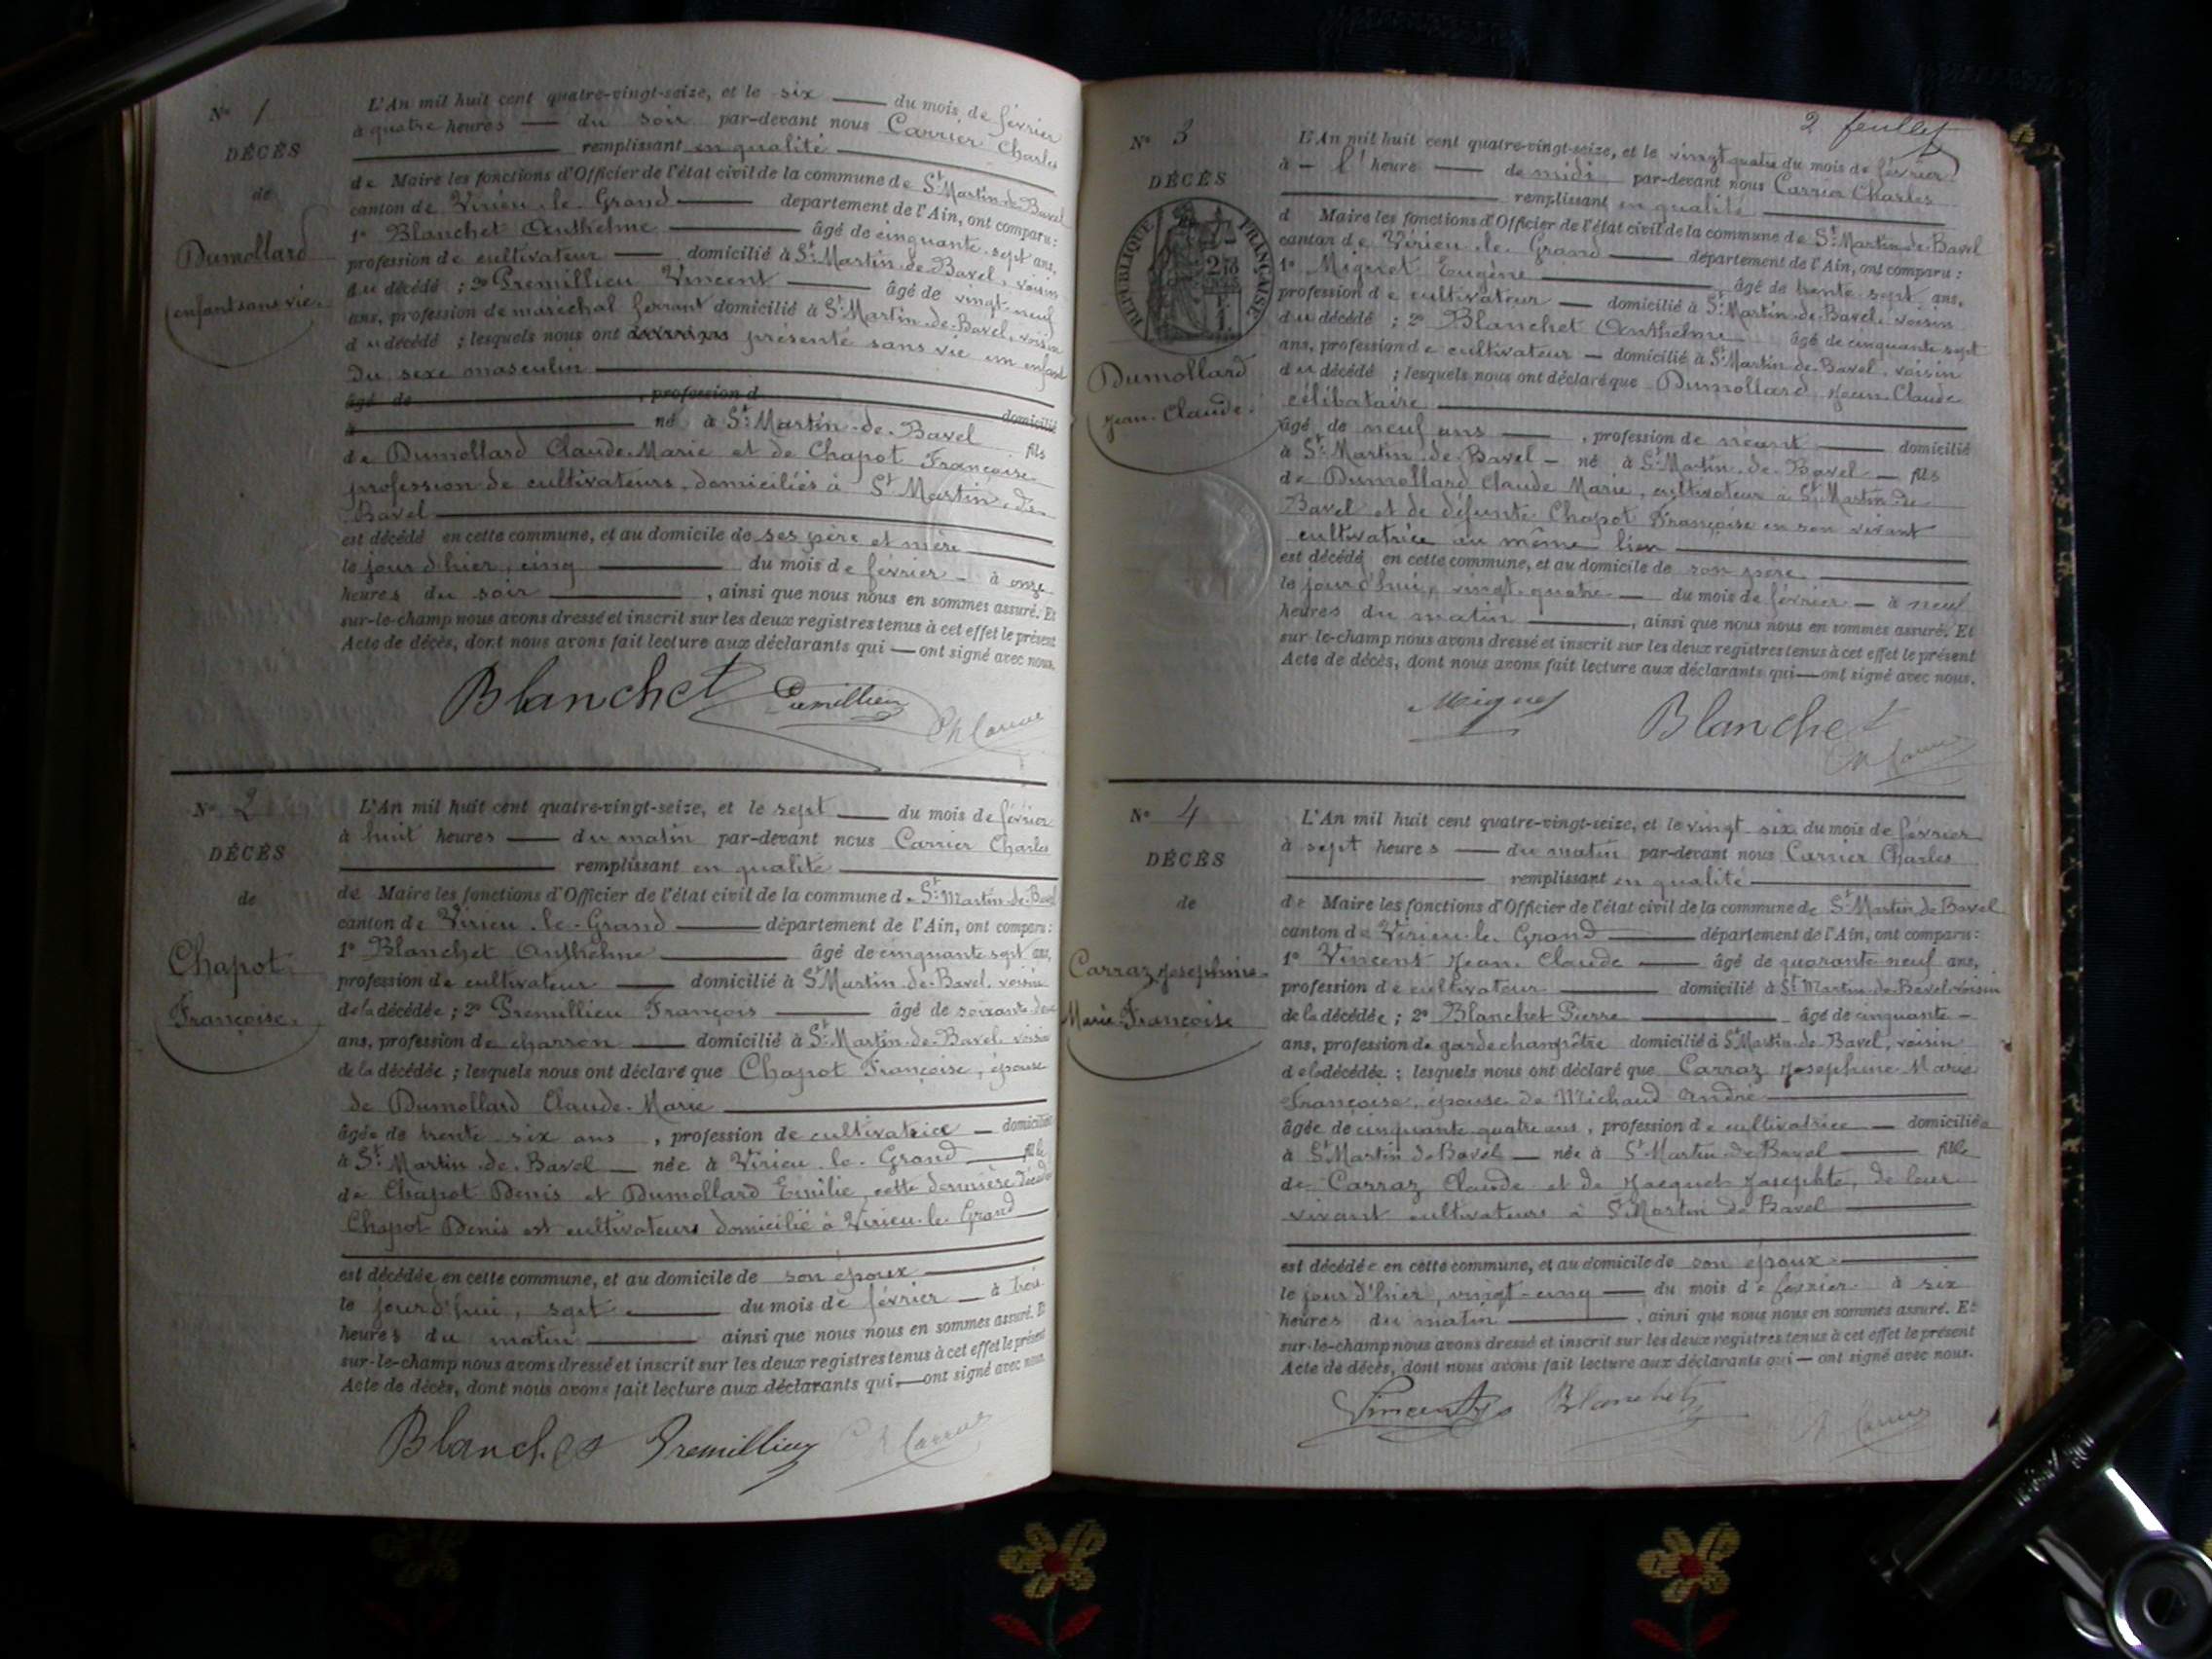 N° 1
DÉCÈS
de
Dumollard
(enfant sans vie.)
L'An mil huit cent quatre-vingt-seize, et le six du mois de février
à quatre heures du soir par-devant nous Carrier Charles
remplissant en qualité
de Maire les fonctions d'Officier de l'état civil de la commune de St Martin-de-Bavel
canton de Virieu-le-Grand département de l'Ain, ont comparu :
1° Blanchet Anthelme âgé de cinquante-sept ans,
profession de cultivateur domicilié à St Martin-de-Bavel, voisin
du décédé ; 2° Premillieu Vincent âgé de vingt-neuf
ans, profession de maréchal ferrant domicilié à St Martin-de-Bavel, voisin
du décédé ; lesquels nous ont présenté sans vie un enfant
du sexe masculin
âgé de , profession d
domicilié
à né à St Martin-de-Bavel fils
de Dumollard Claude-Marie et de Chapot Françoise
profession de cultivateurs, domiciliés à St Martin-de-
Bavel
est décédé en cette commune, et au domicile de ses père et mère
le jour d'hier, cinq du mois de février à onze
heures du soir , ainsi que nous nous en sommes assuré. Et
sur-le-champ nous avons dressé et inscrit sur les deux registres tenus à cet effet le présent
Acte de décès, dont nous avons fait lecture aux déclarants qui — ont signé avec nous.
Blanchet Premillieu Ch Carrier
N° 2
DÉCÈS
de
Chapot
Françoise.
L'An mil huit cent quatre-vingt-seize, et le sept du mois de février
à huit heures du matin par-devant nous Carrier Charles
remplissant en qualité
de Maire les fonctions d'Officier de l'état civil de la commune de St Martin-de-Bavel
canton de Virieu-le-Grand département de l'Ain, ont comparu :
1° Blanchet Anthelme âgé de cinquante sept ans,
profession de cultivateur domicilié à St Martin-de-Bavel, voisin
de la décédée ; 2° Premillieu François âgé de soixante deux
ans, profession de charron domicilié à St Martin-de-Bavel voisin
de la décédée ; lesquels nous ont déclaré que Chapot Françoise, épouse
de Dumollard Claude-Marie
âgée de trente six ans , profession de cultivatrice — domiciliée
à St Martin-de-Bavel — née à Virieu-le-Grand fille
de Chapot Denis et Dumollard Emilie, cette dernière décédée
Chapot Denis est cultivateurs domicilié à Virieu-le-Grand
est décédée en cette commune, et au domicile de son époux
le jourd'hui, sept du mois de février — à trois
heures du matin ainsi que nous nous en sommes assuré. Et
sur-le-champ nous avons dressé et inscrit sur les deux registres tenus à cet effet le présent
Acte de décès, dont nous avons fait lecture aux déclarants qui — ont signé avec nous.
Blanchet Premillieu Ch Carrier
2 feuillet
N° 3
DÉCÈS
RÉPUBLIQUE FRANÇAISE
Dumollard
Jean-Claude.
L'An mil huit cent quatre-vingt-seize, et le vingt quatre du mois de février
à - l'heure de midi par-devant nous Carrier Charles
remplissant en qualité
d Maire les fonctions d'Officier de l'état civil de la commune de St Martin-de-Bavel
canton de Virieu-le-Grand département de l'Ain, ont comparu :
1° Miguet Eugène âgé de trente-sept ans,
profession de cultivateur — domicilié à St Martin-de-Bavel, voisin
du décédé ; 2° Blanchet Anthelme âgé de cinquante sept
ans, profession de cultivateur — domicilié à St Martin-de-Bavel, voisin
du décédé ; lesquels nous ont déclaré que Dumollard Jean-Claude
célibataire
âgé de neuf ans , profession de néant domicilié
à St Martin-de-Bavel — né à St Martin-de-Bavel — fils
de Dumollard Claude Marie, cultivateur à St Martin-de
Bavel et de défunte Chapot Françoise en son vivant
cultivatrice au même lieu
est décédé en cette commune, et au domicile de son père
le jourd'hui, vingt-quatre du mois de février — à neuf
heures du matin , ainsi que nous nous en sommes assuré. Et
sur-le-champ nous avons dressé et inscrit sur les deux registres tenus à cet effet le présent
Acte de décès, dont nous avons fait lecture aux déclarants qui — ont signé avec nous.
Miguet Blanchet
Ch Carrier
N° 4
DÉCÈS
de
Carraz Josephine-
Marie-Françoise
L'An mil huit cent quatre-vingt-seize, et le vingt six du mois de février
à sept heures — du matin par-devant nous Carrier Charles
remplissant en qualité
de Maire les fonctions d'Officier de l'état civil de la commune de St Martin de Bavel
canton de Virieu-le-Grand département de l'Ain, ont comparu :
1° Vincent Jean-Claude âgé de quarante-neuf ans,
profession de cultivateur domicilié à St Martin-de-Bavel voisin
de la décédée ; 2° Blanchet Pierre âgé de cinquante —
ans, profession de garde champêtre domicilié à St Martin-de-Bavel, voisin
de la décédée ; lesquels nous ont déclaré que Carraz Josephine-Marie
Françoise, épouse de Michaud André
âgée de cinquante quatre ans, profession de cultivatrice — domiciliée
à St Martin de Bavel — née à St Martin-de-Bavel fille
de Carraz Claude et de Jacquet Josephte, de leur
vivant cultivateurs à St Martin de Bavel
est décédée en cette commune, et au domicile de son époux
le jour d'hier, vingt-cinq du mois de février à six
heures du matin , ainsi que nous nous en sommes assuré. Et
sur-le-champ nous avons dressé et inscrit sur les deux registres tenus à cet effet le présent
Acte de décès, dont nous avons fait lecture aux déclarants qui — ont signé avec nous.
Vincent Blanchet
Carrier